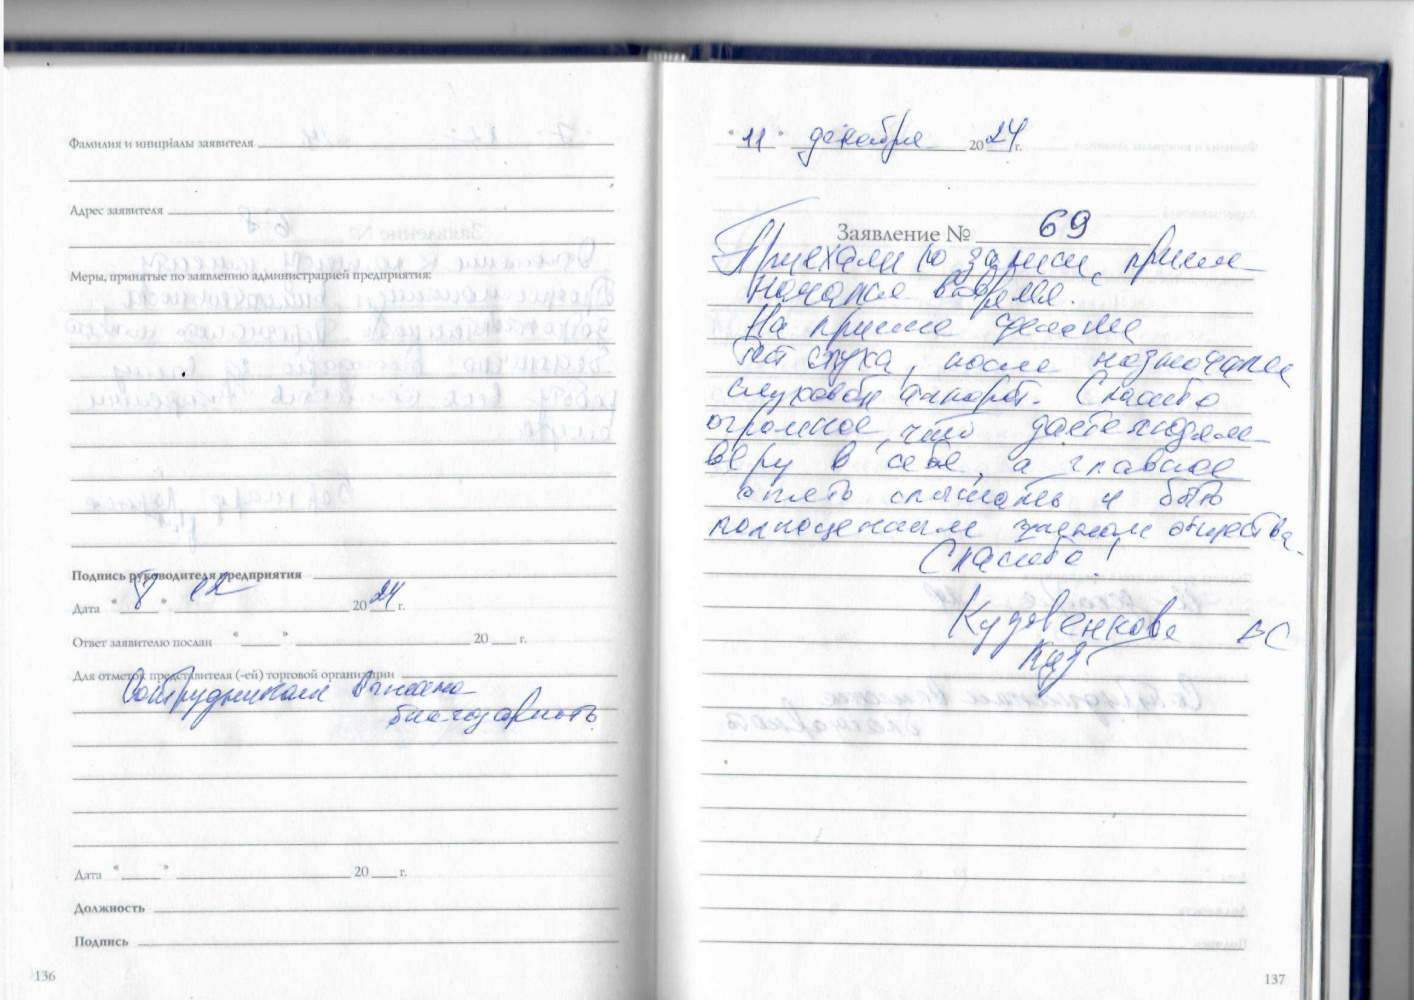 Фамилия и инициалы заявителя
Адрес заявителя
Меры, принятые по заявлению администрацией предприятия:
Подпись руководителя предприятия
Дата " 8 " 12 2024 г.
Ответ заявителю послан " " 20 г.
Для отметок представителя (-ей) торговой организации
Сотрудникам вынесена
благодарность
Дата " " 20 г.
Должность
Подпись
136
" 11 " декабря 2024 г.
Заявление № 69
Приехали по записи, прием
начался вовремя.
На приеме сделали
тест слуха, после назначили
слуховой аппарат. Спасибо
огромное, что даете людям
веру в себя, а главное
опять слышать и быть
полноценным членом общества.
Спасибо!
Кудовенкова ВС
137